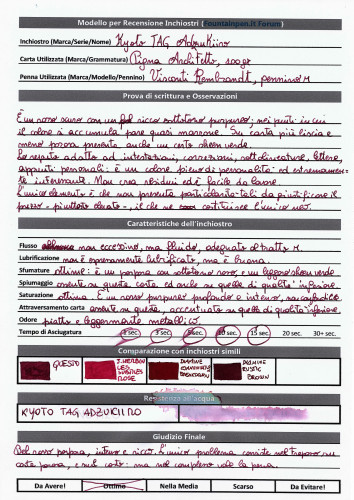 Modello per Recensione Inchiostri (Fountainpen.it Forum)
Inchiostro (Marca/Serie/Nome) Kyoto TAG Adzukiiro
Carta Utilizzata (Marca/Grammatura) Pigna Architetto, 100gr
Penna Utilizzata (Marca/Modello/Pennino) Visconti Rembrandt, pennino M
Prova di scrittura e Osservazioni
È un rosso scuro con un bel ricco sottotono purpureo; nei punti in cui
il colore si accumula pare quasi marrone. Su carta più liscia e
meno porosa presenta anche un certo sheen verde.
Lo reputo adatto ad intestazioni, correzioni, sottolineature, lettere,
appunti personali: è un colore pieno di personalità ed estremamen-
te interessante. Non crea residui ed è facile da lavare.
L'unico elemento è che non presenta particolarità tali da giustificare il
prezzo - piuttosto elevato -, il che ne costituisce l'unico neo.
Caratteristiche dell'inchiostro
Flusso non eccessivo, ma fluido, adeguato al tratto M.
Lubrificazione non è estremamente lubrificato, ma è buona.
Sfumature ottime: è un porpora con sottotono rosso, e un leggero sheen verde
Spiumaggio assente su questa carta, ed anche su quelle di qualità inferiore
Saturazione ottima. È un rosso purpureo profondo e intenso, ma
Attraversamento carta assente su questa, accentuato su quelle di qualità inferiore.
Odore piatto e leggermente metallico
Tempo di Asciugatura 1 sec. 5 sec. 10 sec. 15 sec. 20 sec. 30+ sec.
Comparazione con inchiostri simili
QUESTO J. HERBIN LES SUBTILES ROSE DIAMINE BRENTANO DIAMINE RUSTIC BROWN
Resistenza all'acqua
KYOTO TAG ADZUKIIRO
Giudizio Finale
Bel rosso porpora, intenso e ricco. L'unico problema consiste nel trapasso su
carta porosa, e nel costo: ma nel complesso vale la pena.
Da Avere! Ottimo Nella Media Scarso Da Evitare!